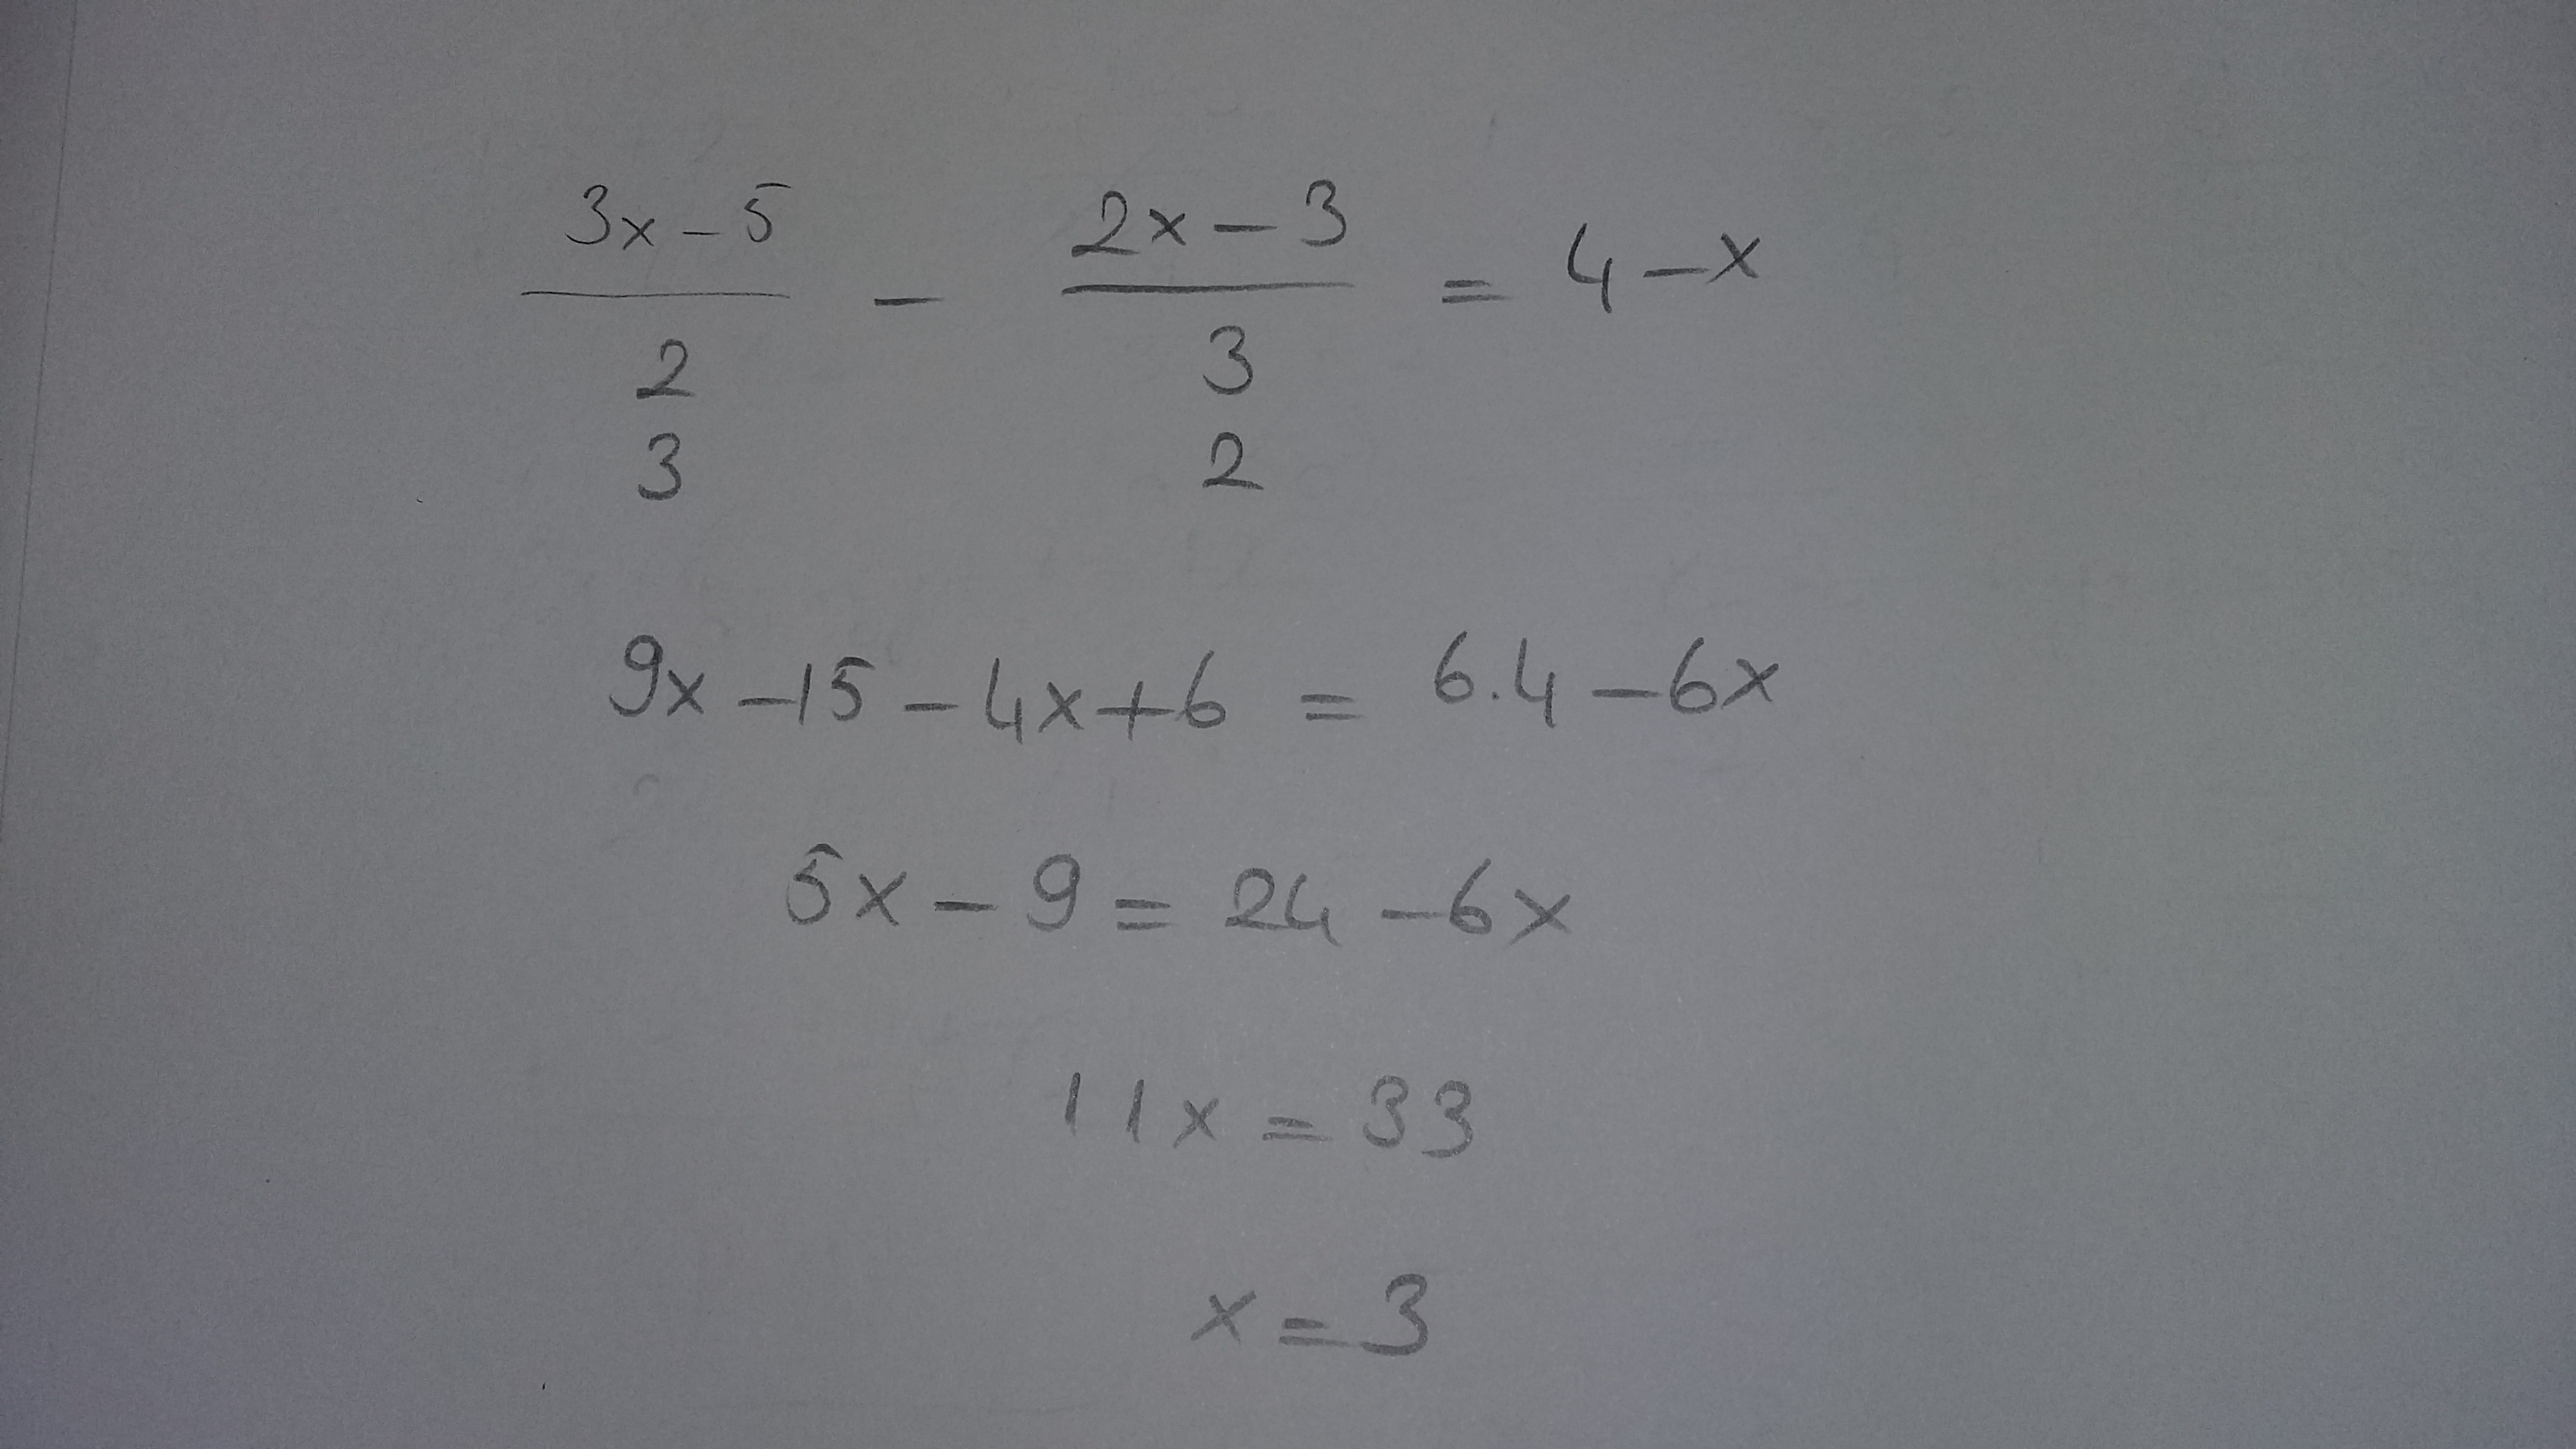 3x - 5 / 2 - 2x - 3 / 3 = 4 - x
3 2
9x - 15 - 4x + 6 = 6.4 - 6x
5x - 9 = 24 - 6x
11x = 33
x = 3